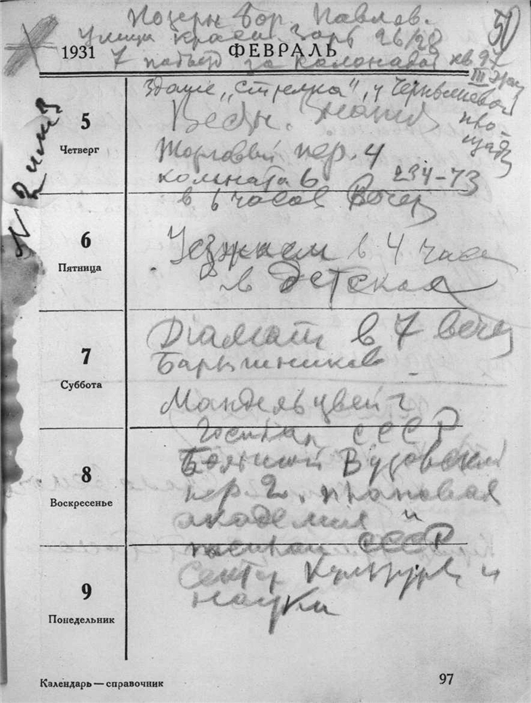 Позерн Бор. Павлов.
50
Улица Красн Зорь 26/28
7 подъезд за колонадой кв. 97
III этаж
1931 ФЕВРАЛЬ
здание „Стрелка", у Чернышевой
площади
5
Четверг
Вестн. Знания
Торговый пер. 4
комната 6 234-73
в 6 часов вечер
6
Пятница
Уезжаем в 4 часа
в Детское
7
Суббота
Диамат в 7 вечер
Барышников
Мандельцвейг
Госплан СССР
8
Воскресенье
Большой Вузовский
пер. 2. плановая
академия и
госплан СССР
9
Понедельник
Сектор Культуры и
науки
Календарь — справочник
97